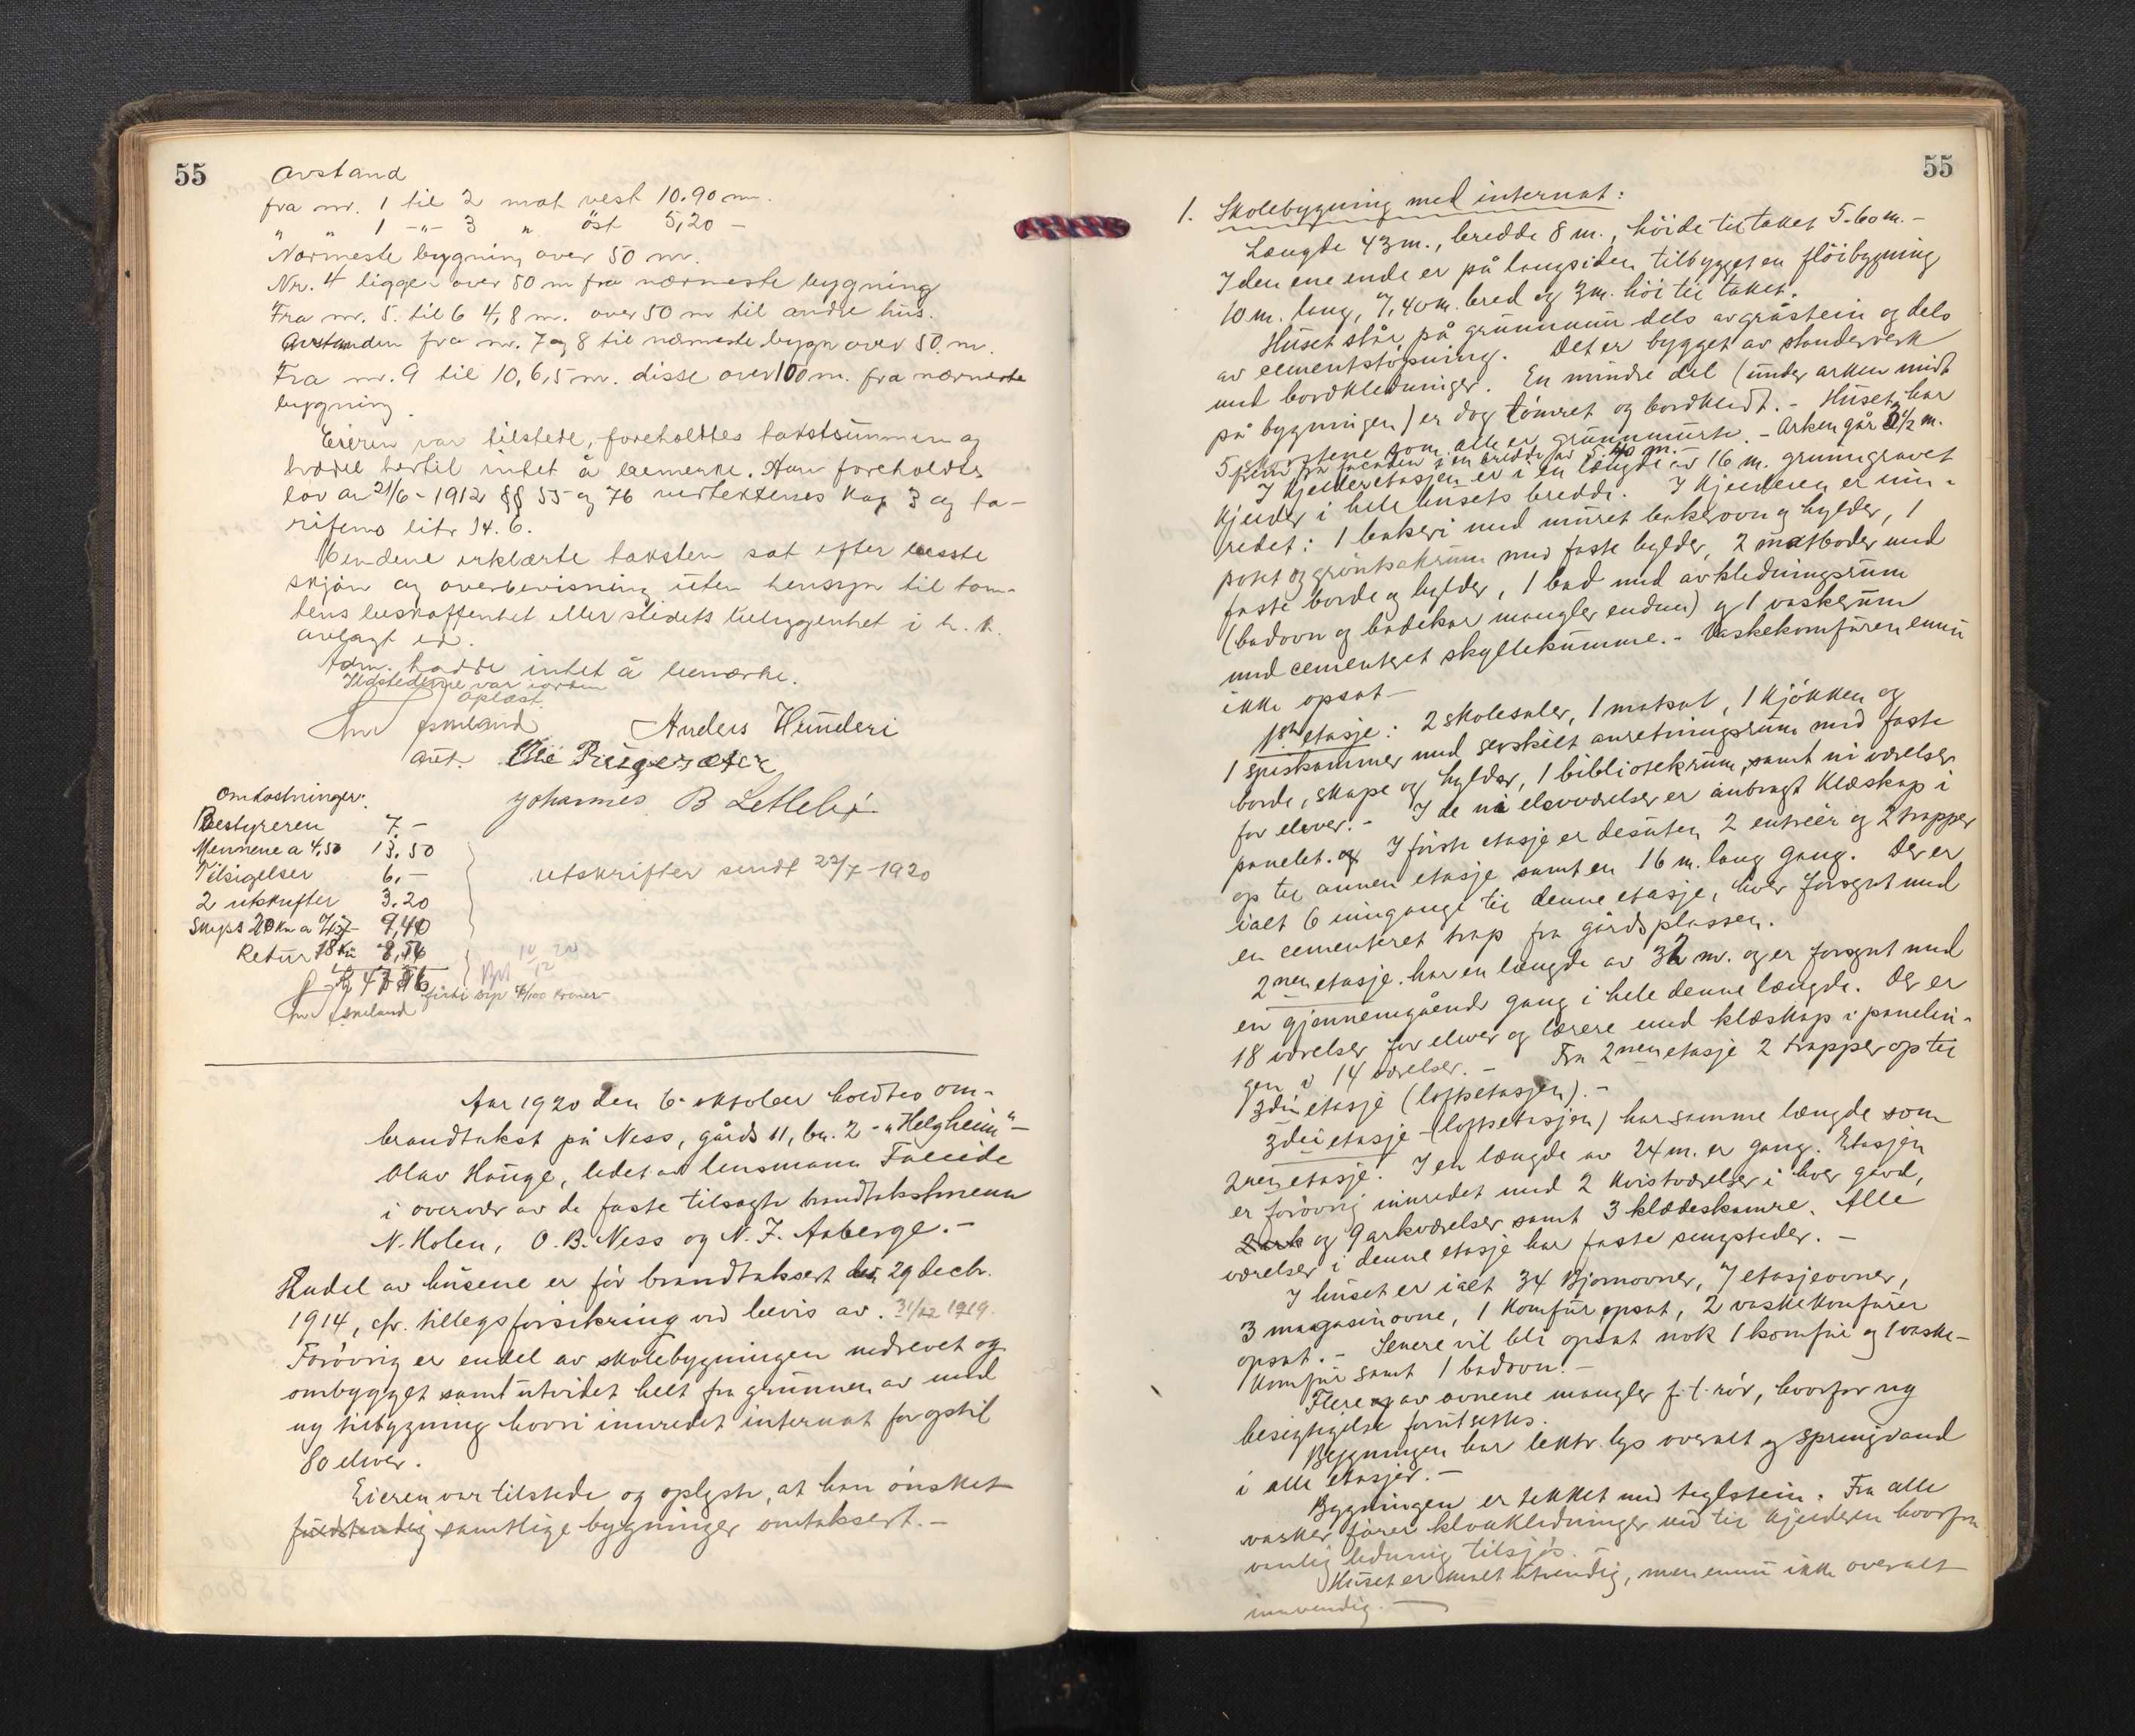 55
Avstand
fra nr. 1 til 2 mot vest 10.90 m.
" " 1 -"- 3 " öst 5,20 -
Nærmeste bygning over 50 m.
Nr. 4 ligger over 50 m fra nærmeste bygning
Fra nr. 5. til 6 4,8 m. over 50 m til andre hus.
Avstanden fra nr. 7 og 8 til nærmeste bygn over 50 m.
Fra nr. 9 til 10, 6,5 m. disse over 100 m. fra nærmeste
bygning.
Eieren var tilstede, foreholdtes takstsummen og
hadde hertil intet å bemerke. Han foreholdtes
lov av 21/6-1912 §§ 55 og 76 vedtektenes kap 3 og ta-
rifens litr 14. 6.
Mendene erklærte taksten sat efter beste
skjön og overbevisning uten hensyn til tom-
tens beskaffenhet eller stedets beliggenhet i h. t.
avlagt ed.
Adm. hadde intet å bemærke.
Ildstederne var iorden
Oplæst.
Anders Hunderi
aut.
Johannes B Letlebö.
Omkostninger:
Bestyreren 7.-
Mennene a 4,50 13.50
Tilsigelser 6.-
2 utskrifter 3.20
Skyss 20 km a 9,40
Retur 18 km
Utskrifter sendt 22/7-1920
Aar 1920 den 6. oktober holdtes om-
brandtakst på Ness, gårds 11, br. 2 - "Helgheim" -
Olav Hauge, ledet av lensmann Faleide
i overvær av de faste tilsagte brandtakstmenn
N. Molen, O. B. Ness og N. J. Aaberge. -
Endel av husene er för brandtaksert den 29 decbr.
1914, cfr. tillegsforsikring ved bevis av. 31/12 1919.
Forövrig er endel av skolebygningen nedrevet og
ombygget samt utvidet helt fra grunnen av med
ny tilbygning hvori innredet internat for optil
80 elever.
Eieren var tilstede og oplyste, at han önsket
fuldstendig samtlige bygninger omtaksert. -
55
1. Skolebygning med internat:
Længde 43 m., bredde 8 m., höide til taket 5.60 m. -
I den ene ende er på langsiden tilbygget en flöibygning
10 m. lang, 7,40 m. bred og 3 m. höi til taket.
Huset står på grunnmur dels av gråstein og dels
av cementstöpning. Det er bygget av stenderverk
med bordkledninger. En mindre del (under arken midt
på bygningen) er dog tömret og bordkledt. - Huset har
5 skorstene som alle er grunnmurte. - Arken går 2 1/2 m.
frem fra facaden i en bredde av 5.40 m. -
I kjelderetasjen er i en længde av 16 m. grunngravet
kjelder i hele husets bredde. I kjelderen er inn-
redet: 1 bakeri med muret bakerovn og hylder, 1
potet og grönsakrum med faste hylder, 2 matboder med
faste borde og hylder, 1 bad med avkledningsrum
(badovn og badekar mangler endnu) og 1 vaskerum
med cementeret skyllekumme. - Vaskekomfuren ennu
ikke opsat -
1ste etasje: 2 skolesaler, 1 matsal, 1 kjökken og
1 spiskammer med serskilt anretningsrum med faste
borde, skape og hylder, 1 bibliotekrum, samt ni værelser
for elever. - I de ni elevværelser er anbragt klæskap i
panelet. og I förste etasje er desuten 2 entréer og 2 trapper
op til annen etasje samt en 16 m. lang gang. Der er
ialt 6 innganger til denne etasje, hver forsynt med
en cementeret trap fra gårdsplassen.
2nen etasje. har en længde av 32 m. og er forsynt med
en gjennemgående gang i hele denne længde. Der er
18 værelser for elever og lærere med klæskap i panelin-
gen i 14 værelser. - Fra 2nen etasje 2 trapper op til
3die etasje (loftsetasjen). -
3die etasje - (loftsetasjen) har samme længde som
2nen etasje. I en længde av 24 m. er gang. Etasjen
er forövrig innredet med 2 kvistværelser i hver gavl,
2 ark og 9 arkværelser samt 3 klædeskamre. Alle
værelser i denne etasje har faste sengsteder. -
I huset er ialt 34 Bjornovner, 7 etasjeovner,
3 magasinovne, 1 komfur opsat, 2 vaskekomfurer
opsat. - Senere vil bli opsat nok 1 komfur og 1 vaske-
komfur samt 1 badovn. -
Flere og av ovnene mangler f. t. rör, hvorfor ny
besigtigelse forutsettes.
Bygningen har lektr. lys overalt og springvand
i alle etasjer. -
Bygningen er tekket med teglstein. Fra alle
vasker förer kloakledninger ned til kjelderen hvorfra
vanlig ledning tilsjös.
Huset er malt utvendig, men ennu ikke overalt
innvendig. -